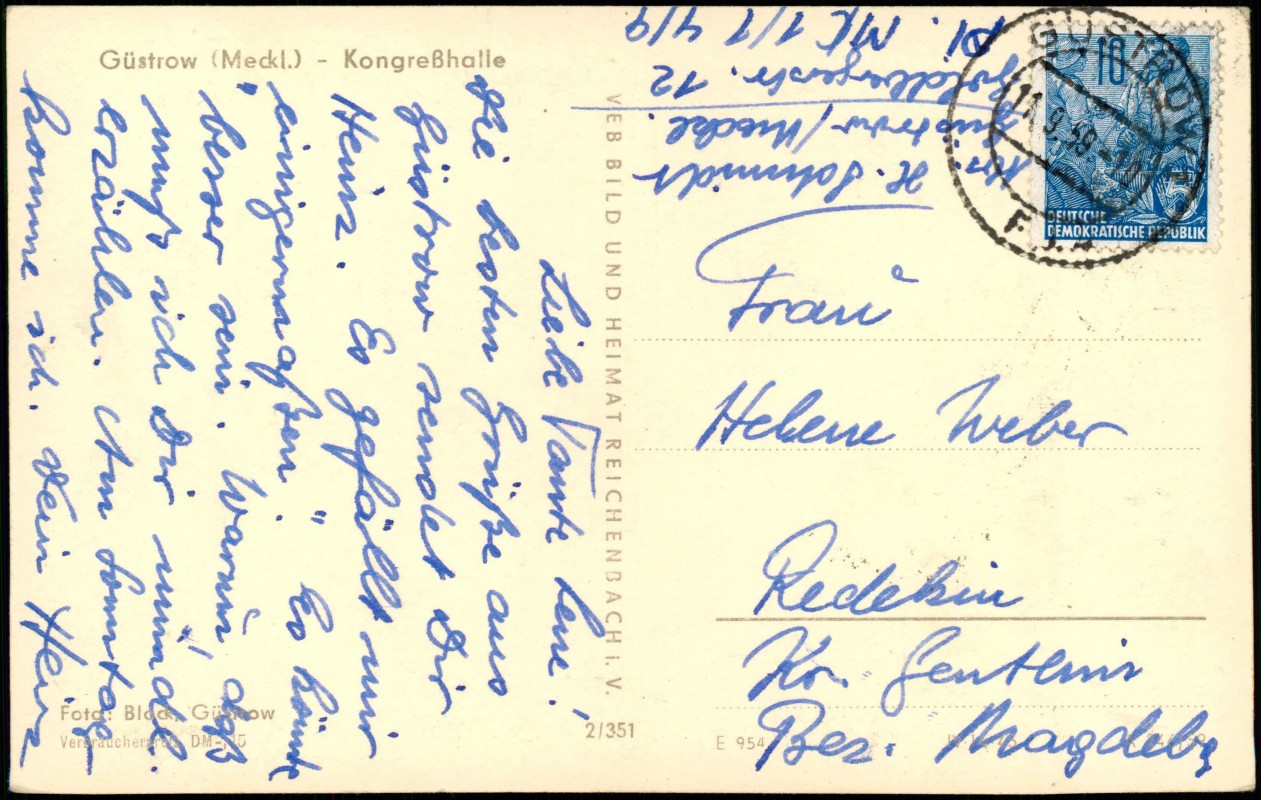 Güstrow (Meckl.) - Kongreßhalle
Liebe Tante Lene!
Die besten Grüße aus
Güstrow sendet Dir
Heinz. Es gefällt mir
einigermaßen. "Es könnte
" besser sein. Warum, das
muß ich Dir mündl.
erzählen. Am Sonntag
komme ich. Dein Heinz
Foto: Block, Güstrow
Verbraucherpreis DM -,15
VEB BILD UND HEIMAT REICHENBACH i. V.
2/351
H. Schmidt
Güstrow/Meckl.
Goldbergerstr. 12
GÜSTROW
11.9.59
10
5
DEUTSCHE
DEMOKRATISCHE REPUBLIK
Frau
Helene Weber
Redekin
Kr. Genthin
Bez. Magdebg
E 954